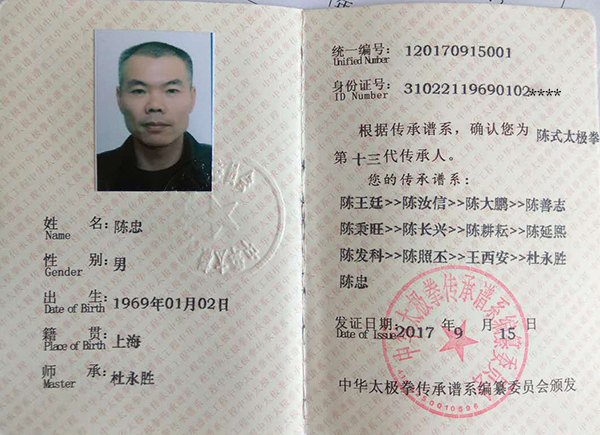 姓 名：陈忠
Name
性 别：男
Gender
出 生：1969年01月02日
Date of Birth
籍 贯：上海
Place of Birth
师 承：杜永胜
Master
统一编号：120170915001
Unified Number
身份证号：31022119690102****
ID Number
根据传承谱系，确认您为 陈式太极拳
第 十三代传承人。
您的传承谱系：
陈王廷>>陈汝信>>陈大鹏>>陈善志
陈秉旺>>陈长兴>>陈耕耘>>陈延熙
陈发科>>陈照丕>>王西安>>杜永胜
陈忠
发证日期：2017 年 9 月 15 日
Date of Issue
中华太极拳传承谱系编纂委员会
中华太极拳传承谱系编纂委员会颁发